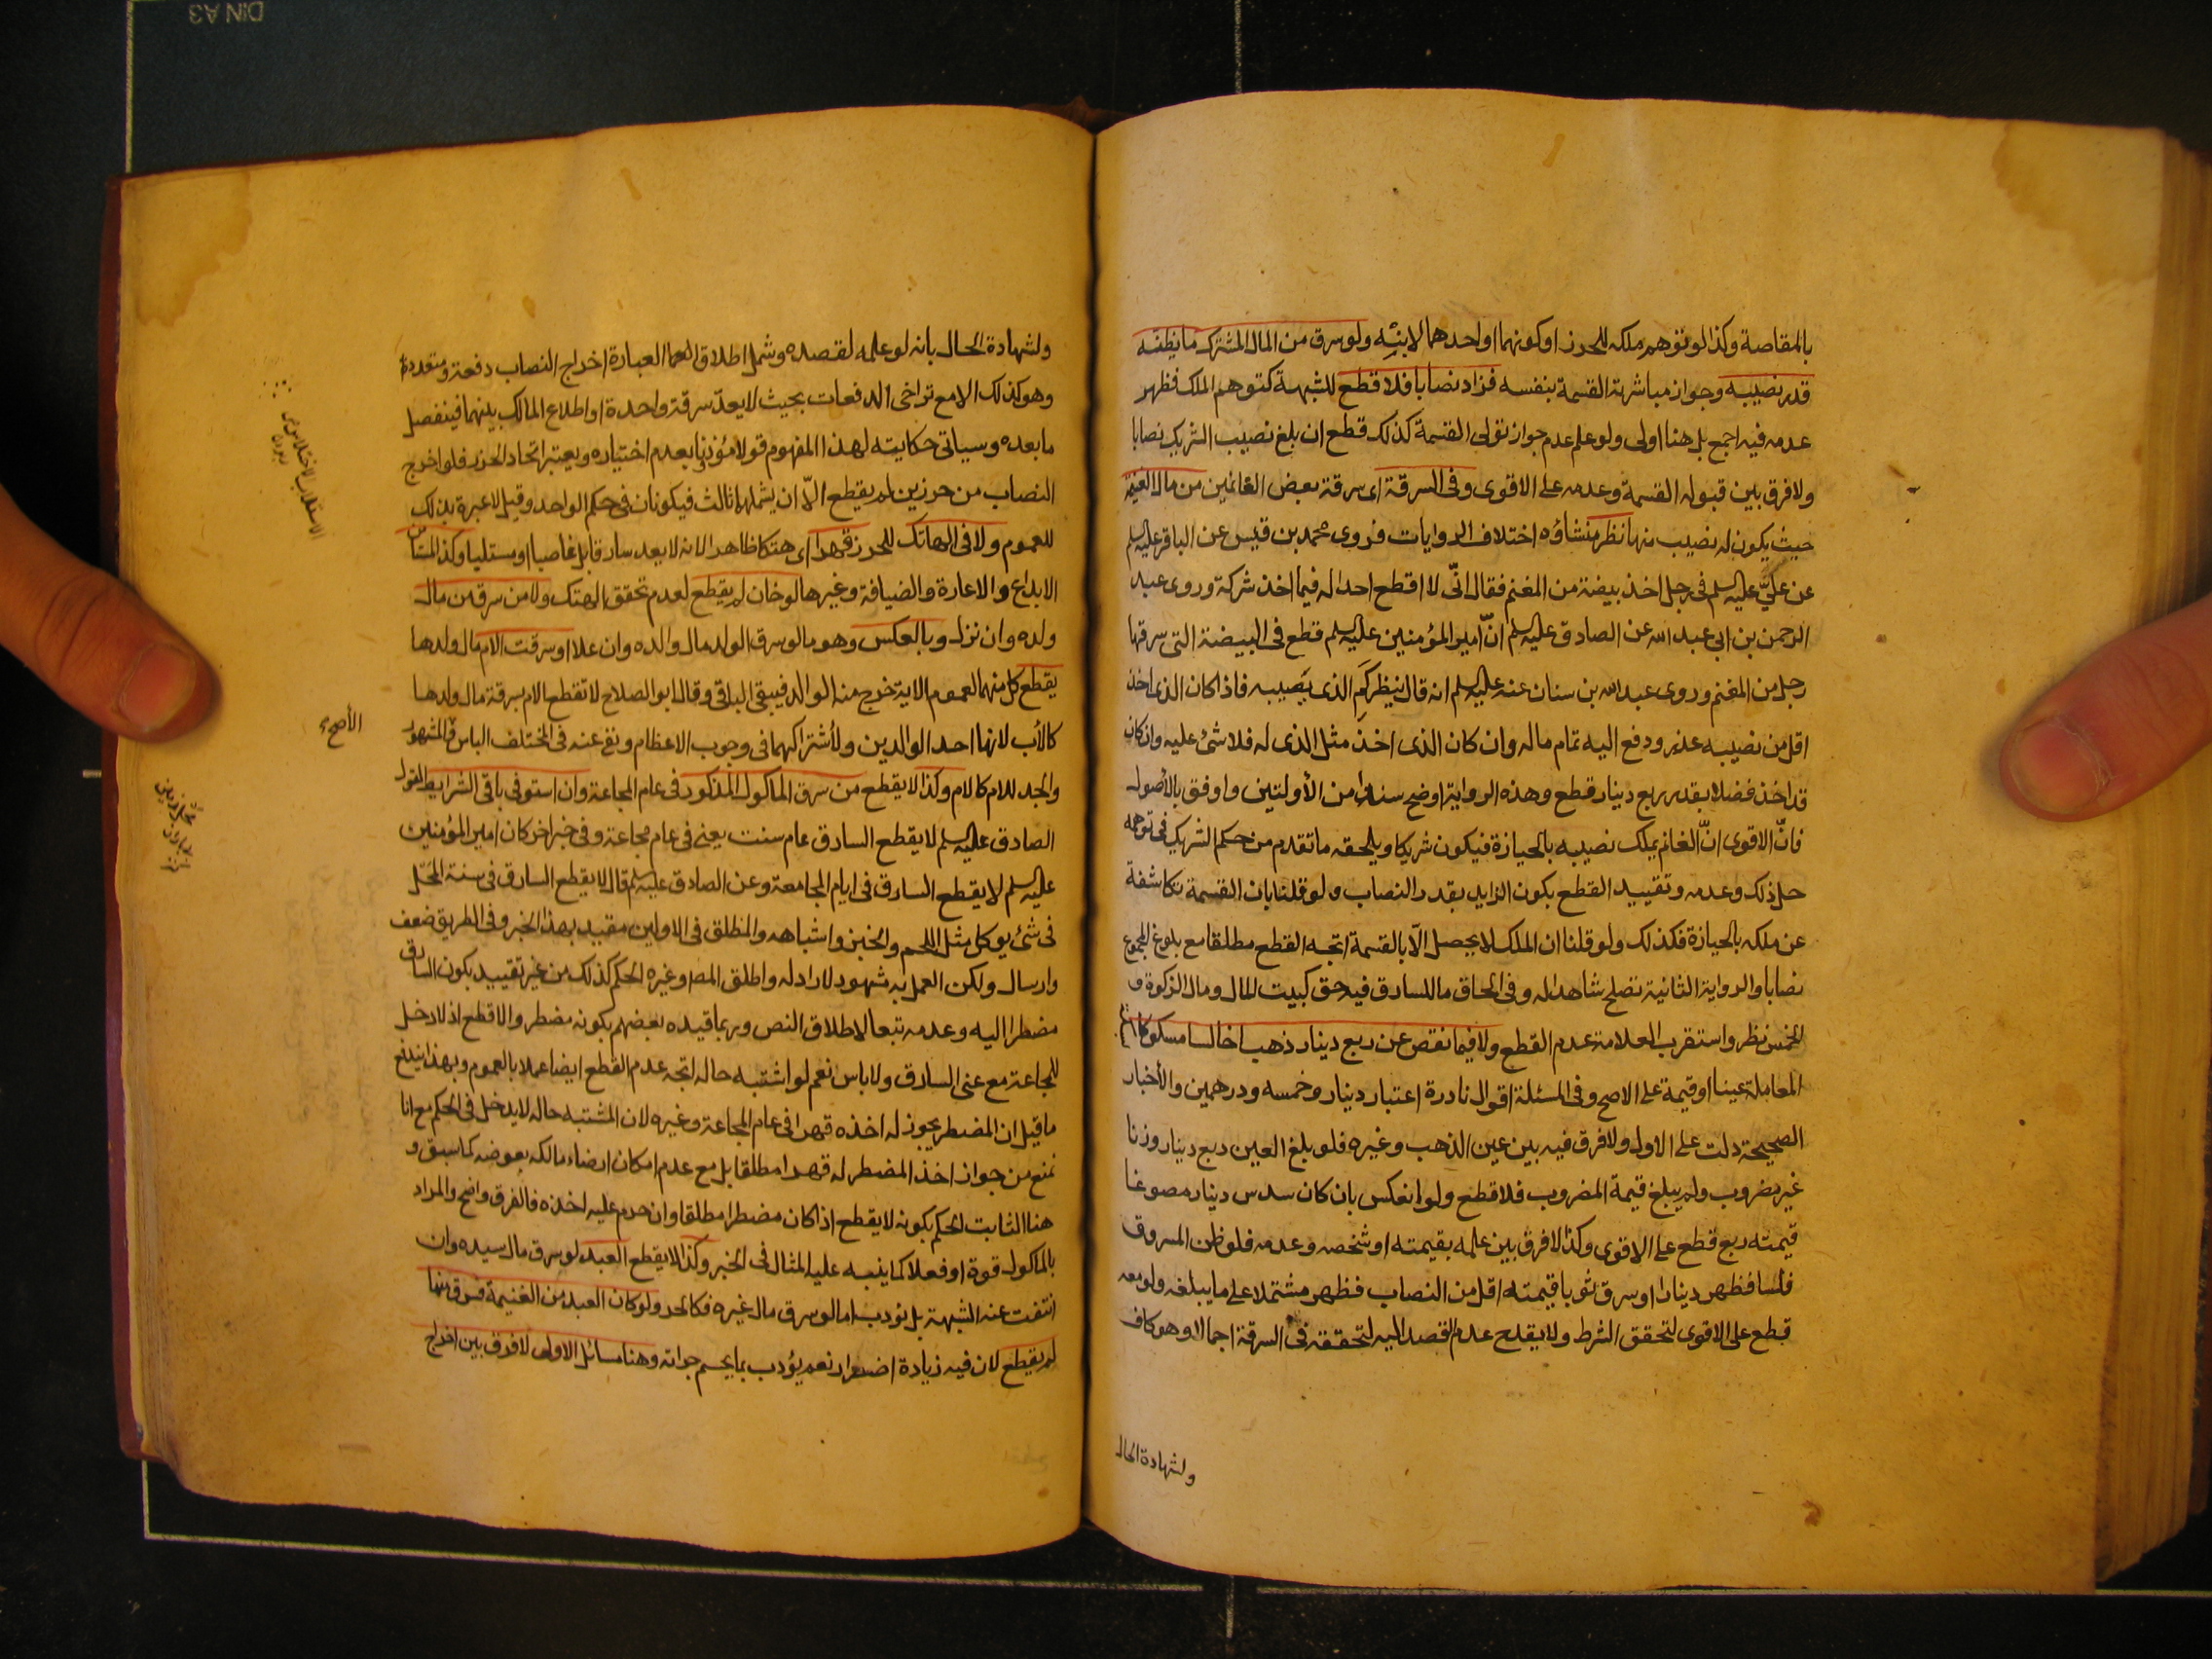 بالمقاصة وكذا لو توهم ملكه للحرز او كونهما او احدهما لابنه ولو سرق من المال المشترك ما يظنه
قدر نصيبه وجواز مباشرته القسمة بنفسه فزاد نصابا فلا قطع للشبهة كتوهم الملك فظهر
عدمه فيه اجمع بل هنا اولى ولو علم عدم جواز تولى القسمة كذلك قطع ان بلغ نصيب الشريك نصابا
ولا فرق بين قبوله القسمة وعدمه على الاقوى وفى السرقة اى سرقة بعض الغانمين من مال الغنيمة
حيث يكون له نصيب منها نظر منشاؤه اختلاف الروايات فروى محمد بن قيس عن الباقر عليه السلم
عن علىّ عليه السلم فى رجل اخذ بيضة من المغنم فقال انّى لا اقطع احدا له فيما اخذ شركة وروى عبد
الرحمن بن ابى عبد الله عن الصادق عليه السلم انّ امير المؤمنين عليه السلم قطع فى البيضة التى سرقها
رجل من المغنم وروى عبد الله بن سنان عنه عليه السلم انه قال ينظر كم الذى يصيبه فاذا كان الذى اخذ
اقل من نصيبه عذر ودفع اليه تمام ماله وان كان الذى اخذ مثل الذى له فلا شئ عليه وان كان
قد اخذ فضلا بقدر ربع دينار قطع وهذه الرواية اوضح سندا من الأولتين واوفق بالأصول
فانّ الاقوى انّ الغانم يملك نصيبه بالحيازة فيكون شريكا ويلحقه ما تقدم من حكم الشريك فى توهمه
حل ذلك وعدمه وتقييد القطع بكون الزايد بقدر النصاب ولو قلنا بان القسمة كاشفة
عن ملكه بالحيازة فكذلك ولو قلنا ان الملك لا يحصل الّا بالقسمة اتجه القطع مطلقا مع بلوغ المجموع
نصابا والرواية الثانية تصلح شاهدا له وفى الحاق ما للسارق فيه حق كبيت المال ومال الزكوة و
الخمس نظر واستقرب العلامة عدم القطع ولا فيما نقص عن ربع دينار ذهبا خالصا مسكوكا
المعاملة عينا او قيمة على الاصح وفى المسئلة اقوال نادرة اعتبار دينار وخمسه ودرهمين والأخبار
الصحيحة دلت على الاول ولا فرق فيه بين عين الذهب وغيره فلو بلغ العين ربع دينار وزنا
غير مضروب ولم يبلغ قيمة المضروب فلا قطع ولو انعكس بان كان سدس دينار مصوغا
قيمته ربع قطع على الاقوى وكذا لا فرق بين علمه بقيمته او شخصه وعدمه فلو ظن المسروق
فلسا فظهر دينارا او سرق ثوبا قيمته اقل من النصاب فظهر مشتملا على ما يبلغه ولو معه
قطع على الاقوى لتحقق الشرط ولا يقدح عدم القصد اليه لتحققه فى السرقة اجمالا وهو كاف
ولشهادة الحال
ولشهادة الحال بانه لو علمه لقصده وشمل اطلاق العبارة اخراج النصاب دفعة ومتعددة
وهو كذلك الا مع تراخى الدفعات بحيث لا يعدّ سرقة واحدة او اطلاع المالك بينهما فينفصل
ما بعده وسياتى حكايته لهذا المفهوم قولا مؤذنا بعدم اختياره ويعتبر اتحاد الحرز فلو اخرج
النصاب من حرزين لم يقطع الّا ان يشملهما ثالث فيكونان فى حكم الواحد وقيل لا عبرة بذلك
للعموم ولا فى الهاتك للحرز قهرا اى هتكا ظاهرا لانه لا يعد سارقا بل غاصبا او مستلبا وكذا المستأمن
الايداع والاعارة والضيافة وغيرها لو خان لم يقطع لعدم تحقق الهتك ولا من سرق من مال
ولده وان نزل وبالعكس وهو ما لو سرق الولد مال والده وان علا او سرقت الام مال ولدها
يقطع كل منهما لعموم الاية خرج منه الوالد فيبقى الباقى وقال ابو الصلاح لا تقطع الام بسرقة مال ولدها
كالأب لانها احد الوالدين ولأشتراكهما فى وجوب الاعظام ونفى عنه فى المختلف الباس والمشهور
الأصح
والجد للام كالام وكذا لا يقطع من سرق الماكول المذكور فى عام المجاعة وان استوفى باقى الشرايط لقول
الصادق عليه السلم لا يقطع السارق عام سنت يعنى فى عام مجاعة وفى خبر اخر كان امير المؤمنين
عليه السلم لا يقطع السارق فى ايام المجاعة وعن الصادق عليه السلم قال لا يقطع السارق فى سنة المحل
فى شئ يوكل مثل اللحم والخبز واشباهه والمطلق فى الاولين مقيد بهذا الخبر وفى الطريق ضعف
وارسال ولكن العمل به مشهود لا راد له واطلق المص وغيره الحكم كذلك من غير تقييد بكون السارق
مضطرا اليه وعدمه تبعا لاطلاق النص وربما قيده بعضهم بكونه مضطر والا قطع اذ لا دخل
للمجاعة مع غنى السارق ولا باس نعم لو اشتبه حاله اتجه عدم القطع ايضا عملا بالعموم وبهذا يندفع
ما قيل ان المضطر يجوز له اخذه قهرا فى عام المجاعة وغيره لان المشتبه حاله لا يدخل فى الحكم مع انا
نمنع من جواز اخذ المضطر له قهرا مطلقا بل مع عدم امكان ارضاء مالكه بعوضه كما سبق و
هنا الثابت الحكم بكونه لا يقطع اذا كان مضطرا مطلقا وان حرم عليه اخذه فالفرق واضح والمراد
بالماكول قوة او فعلا كما ينبه عليه المثال فى الخبر وكذا لا يقطع العبد لو سرق مال سيده وان
انتفت عنه الشبهة بل يؤدب اما لو سرق مال غيره فكالحر ولو كان العبد من الغنيمة فسرق منها
لم يقطع لان فيه زيادة اضرار نعم يؤدب بما يحسم جراته وهنا مسائل الاولى لا فرق بين اخراج
DIN A3